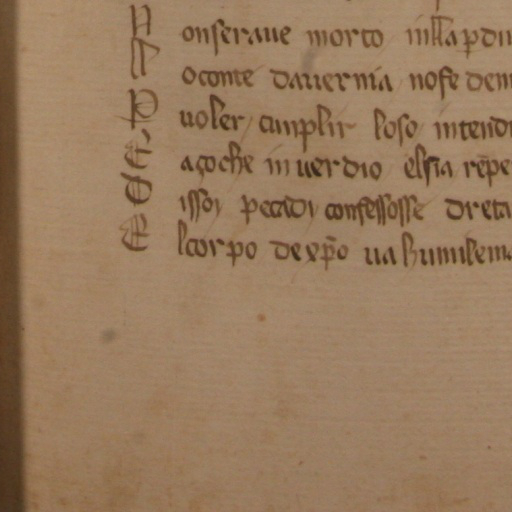 N onseraue morto in
L oconte dauernia nose dem
P uoler cunplir loso intend
E açoche in uer dio elsia repe
D issoi pecadi confessosse dreta
E lcorpo de xpo ua humilema